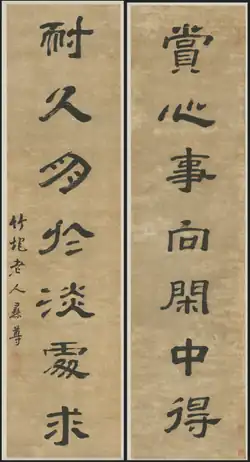 賞心事向閑中得
耐久朋於淡處求
竹垞老人彝尊